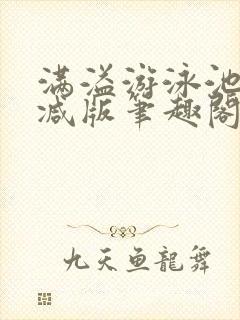 满溢游泳池
减版笔趣阁
九天鱼龙舞